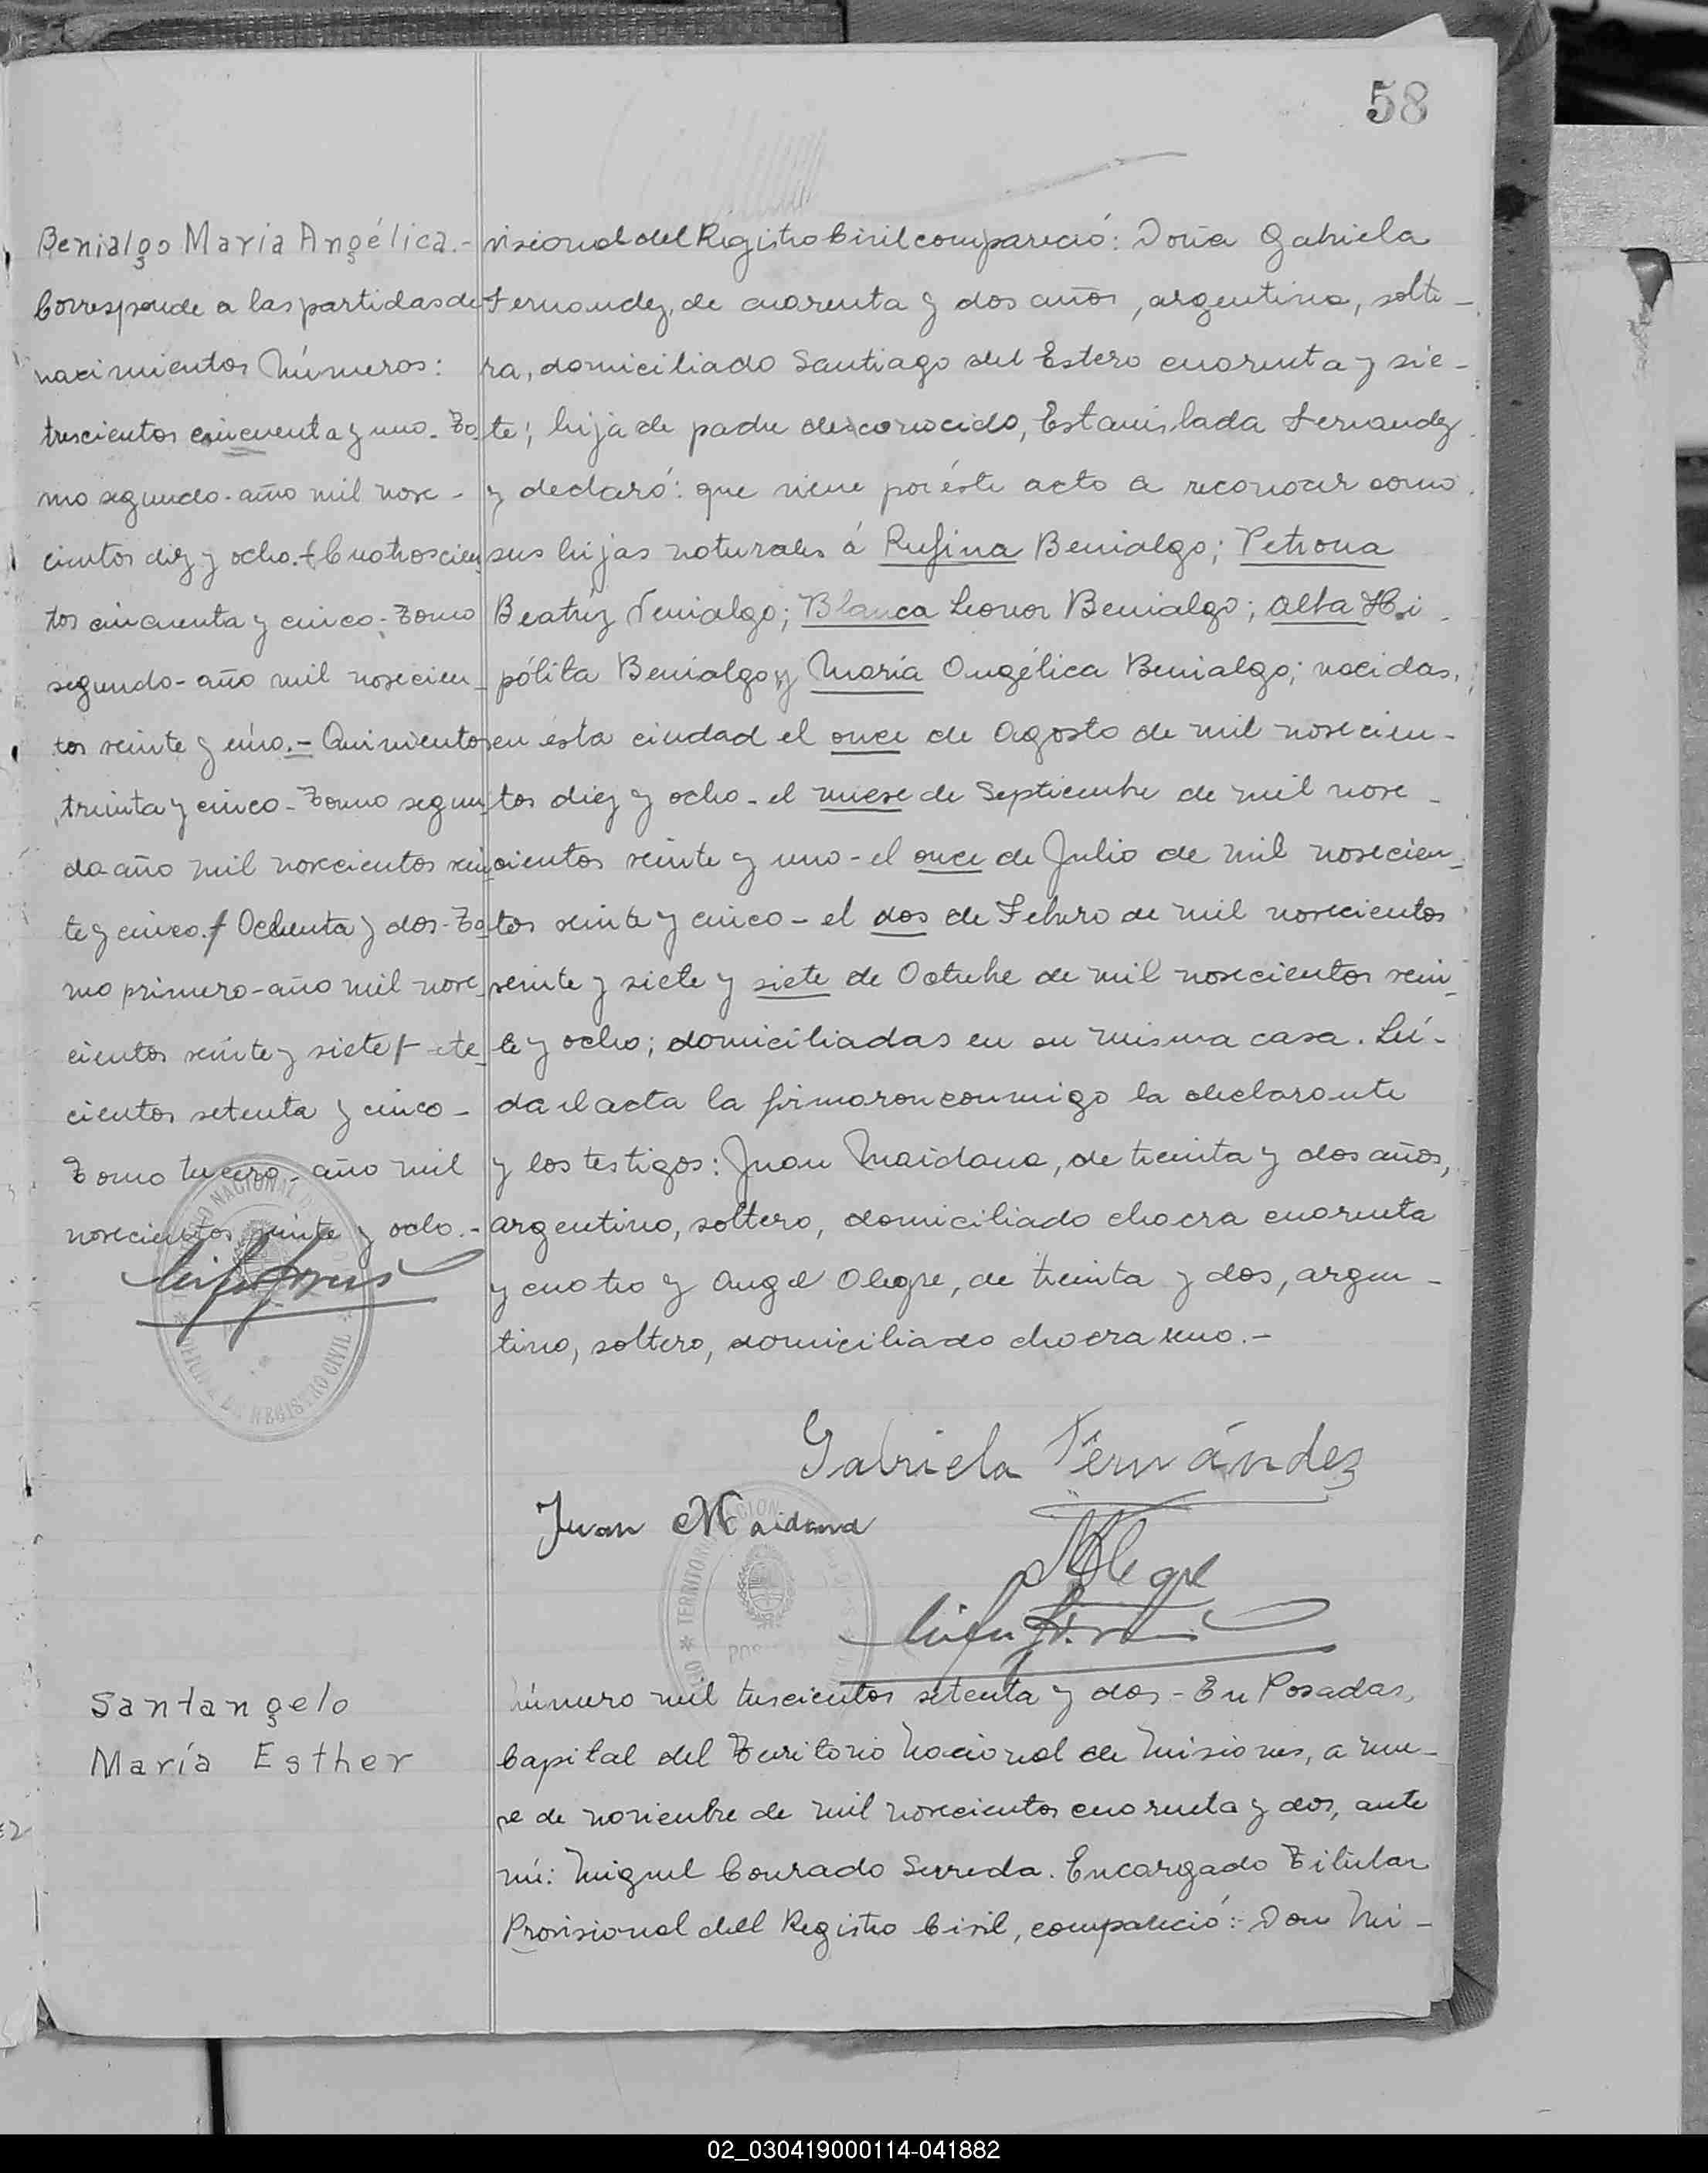 58
Benialgo María Angélica.-
Corresponde a las partidas de
nacimientos Números:
trescientos cincuenta y uno - To-
mo segundo - año mil nove-
cientos diez y ocho. + Cuatroscien-
tos cincuenta y cinco - Tomo
segundo - año mil novecien-
tos veinte y uno. - Quinientos
treinta y cinco - Tomo segun-
do año mil novecientos vein-
te y cinco. + Ochenta y dos - To-
mo primero - año mil nove-
cientos veinte y siete + sete-
cientos setenta y cinco -
Tomo tercero - año mil
novecientos veinte y ocho. -
OFICINA DE REGISTRO CIVIL
visional del Registro Civil compareció: Doña Gabriela
Fernandez, de cuarenta y dos años, argentina, solte-
ra, domiciliado Santiago del Estero cuarenta y sie-
te; hija de padre desconocido, Estanislada Fernandez
y declaró: que viene por éste acto a reconocer como
sus hijas naturales á Rufina Benialgo; Petrona
Beatríz Benialgo; Blanca Leonor Benialgo; Alba Hi-
pólita Benialgo y María Angélica Benialgo; nacidas,
en ésta ciudad el once de Agosto de mil novecien-
tos diez y ocho - el nueve de Septiembre de mil nove-
cientos veinte y uno - el once de Julio de mil novecien-
tos veinte y cinco - el dos de Febrero de mil novecientos
veinte y siete y siete de Octubre de mil novecientos vein-
te y ocho; domiciliadas en su misma casa. Leí-
da el acta la firmaron conmigo la declarante
y los testigos: Juan Maidana, de treinta y dos años,
argentino, soltero, domiciliado chacra cuarenta
y cuatro y Angel Alegre, de treinta y dos, argen-
tino, soltero, domiciliado chacra uno. -
Gabriela Fernández
Juan Maidana
AAlegre
Santangelo
María Esther
Número mil trescientos setenta y dos - En Posadas,
Capital del Territorio Nacional de Misiones, a nue-
ve de noviembre de mil novecientos cuarenta y dos, ante
mí: Miguel Conrado Serreda. Encargado Titular
Provisional dell Registro Civil, compareció: - Don Mi-
02_030419000114-041882